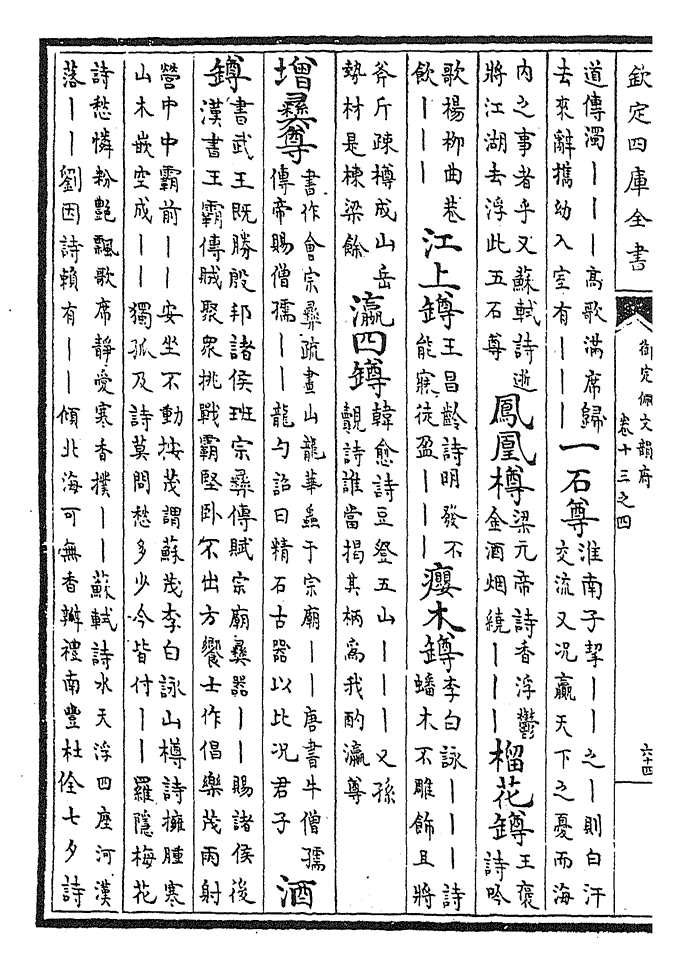 欽定四庫全書
御定佩文韻府
卷十三之四
六十四
道傳濁丨丨丨高歌滿席歸
去來辭攜幼入室有丨丨丨
一石尊
淮南子挈丨丨之丨則白汗
交流又况羸天下之憂而海
内之事者乎又蘇軾詩逝
將江湖去浮此五石尊
鳳凰樽
梁元帝詩香浮鬱
金酒烟繞丨丨丨
榴花鐏
王褒
詩吟
歌楊柳曲卷
飲丨丨丨
江上鐏
王昌齡詩明發不
能寐徒盈丨丨丨
癭木鐏
李白詠丨丨丨詩
蟠木不雕飾且將
斧斤疎樽成山岳
勢材是棟梁餘
瀛四鐏
韓愈詩豆登五山丨丨丨又孫
覿詩誰當揭其柄為我酌瀛尊
增彛尊
書作會宗彛疏畫山龍華蟲于宗廟丨丨唐書牛僧孺
傳帝賜僧孺丨丨龍勺詔曰精石古器以比况君子
酒
鐏
書武王既勝殷邦諸侯班宗彛傳賦宗廟彛器丨丨賜諸侯後
漢書王霸傳賊聚衆挑戰霸堅卧不出方饗士作倡樂茂雨射
營中中霸前丨丨安坐不動按茂謂蘇茂李白詠山樽詩擁腫寒
山木嵌空成丨丨獨孤及詩莫問愁多少今皆付丨丨羅隱梅花
詩愁憐粉艷飄歌席靜愛寒香撲丨丨蘇軾詩水天浮四座河漢
落丨丨劉因詩賴有丨丨傾北海可無香瓣禮南豐杜佺七夕詩